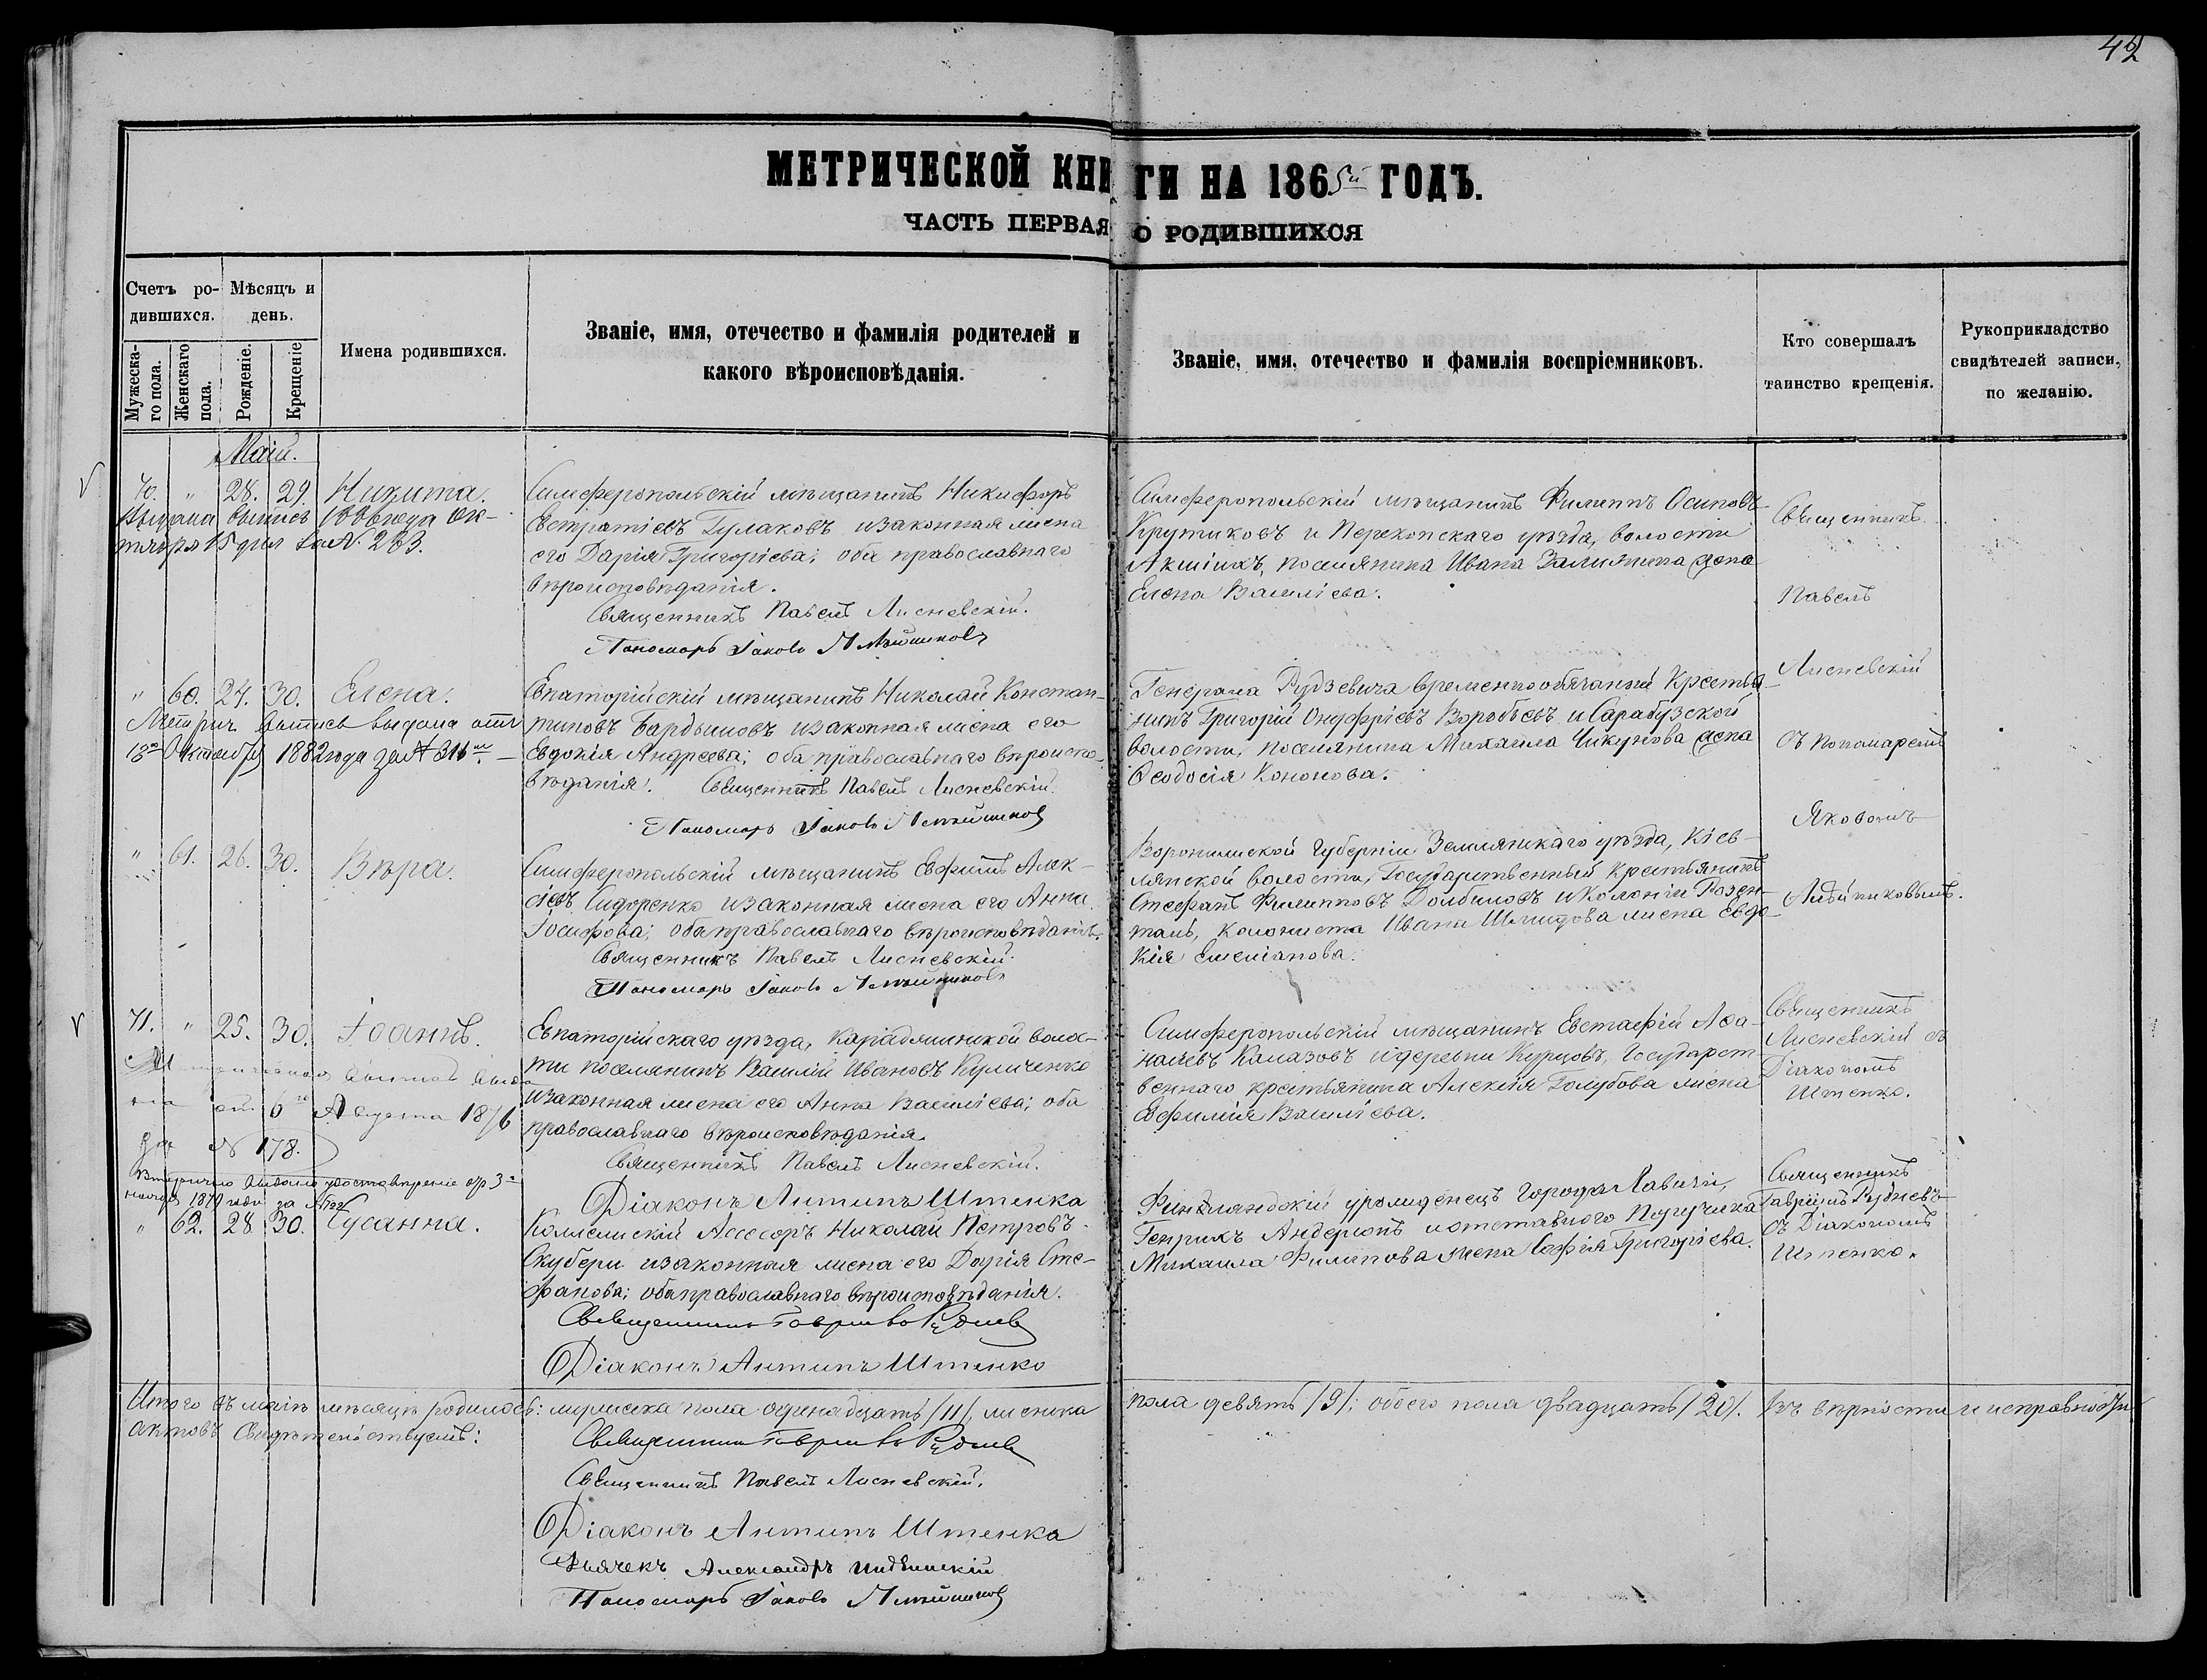 42
МЕТРИЧЕСКОЙ КНИГИ НА 1865й ГОДЪ.
ЧАСТЬ ПЕРВАЯ О РОДИВШИХСЯ
Счетъ ро-
дившихся.
Мѣсяцъ и
день.
Мужеска-
го пола.
Женскаго
пола.
Рожденіе.
Крещеніе
Имена родившихся.
Званіе, имя, отечество и фамилія родителей и
какого вѣроисповѣданія.
Званіе, имя, отечество и фамилія воспріемниковъ.
Кто совершалъ
таинство крещенія.
Рукоприкладство
свидѣтелей записи,
по желанію.
Маій.
70. " 28. 29. Никита.
Выдана выпись 1886 года Ок-
тября 15 дня за № 283.
Симферопольскій мѣщанинъ Никифоръ
Евтратіевъ Гулаковъ и законная жена
его Дарія Григоріева; оба православнаго
вѣроисповѣданія.
Священникъ Павелъ Лисневскій.
Пономарь Іаковъ
Симферопольскій мѣщанинъ Филиппъ Осиповъ
Крутиковъ и Перекопскаго уѣзда, волости
поселянина Ивана жена
Елена Василіева.
Священникъ
Павелъ
Лисневскій
съ пономаремъ
Яковомъ
" 60. 27. 30. Елена.
Метрич. выпись выдана отъ
13го Октября 1882 года за № 316м.
Евпаторійскій мѣщанинъ Николай Констан-
тиновъ и законная жена его
Евдокія Андреева; оба православнаго вѣроиспо-
вѣданія. Священникъ Павелъ Лисневскій.
Пономарь Іаковъ
Генерала Рудзевича временнообязанный Крестья-
нинъ Григорій Онуфріевъ Воробьевъ и Сарабузской
волости, поселянина Михаила Чикунова жена
Ѳеодосія Кононова.
" 61. 26. 30. Вѣра.
Симферопольскій мѣщанинъ Ефимъ Алек-
сіевъ Сидоренко и законная жена его Анна
Іосифова; оба православнаго вѣроисповѣданія.
Священникъ Павелъ Лисневскій.
Пономарь Іаковъ
Воронежской Губерніи Землянскаго уѣзда, Кіев-
лянской волости, Государственный Крестьянинъ
Стефанъ Филипповъ Долбиловъ и колоніи Розен-
таль, колониста Ивана Шмидова жена Евдо-
кія Емеліанова.
71. " 25. 30. Іоаннъ.
Метрическая выпись выда-
на отъ 6го Августа 1876
за № 178.
Вторично выдано удостовѣреніе отъ 3го
1879 года за №
Евпаторійскаго уѣзда, волос-
ти поселянинъ Василій Ивановъ Куличенко
и законная жена его Анна Василіева; оба
православнаго вѣроисповѣданія.
Священникъ Павелъ Лисневскій.
Діаконъ Антипъ Штенка
Симферопольскій мѣщанинъ Евстафій Аѳа-
насіевъ Камазовъ и деревни Курцовъ, Государст-
веннаго крестьянина Алексія Голубова жена
Евфимія Василіева.
Священникъ
Лисневскій съ
Діакономъ
Штенко.
" 62. 28. 30. Сусанна.
Коллежскій Ассесоръ Николай Петровъ
Скубери и законная жена его Дарія Сте-
фанова; оба православнаго вѣроисповѣданія.
Священникъ Гавріилъ Рудневъ
Діаконъ Антипъ Штенко
Финляндскій уроженецъ города
Генрихъ Андерсонъ и отставного Поручика
Михаила Филипова жена Софія Григоріева.
Священникъ
Гавріилъ Рудневъ
съ Діакономъ
Штенко.
Итого въ маіѣ мѣсяцѣ родилось: мужеска пола одинадцать /11/, женска пола девять /9/; обоего пола двадцать /20/. Въ вѣрности и исправности
актовъ свидѣтельствуемъ:
Священникъ Гавріилъ Рудневъ
Священникъ Павелъ Лисневскій.
Діаконъ Антипъ Штенка
Дьячекъ Александръ
Пономарь Іаковъ